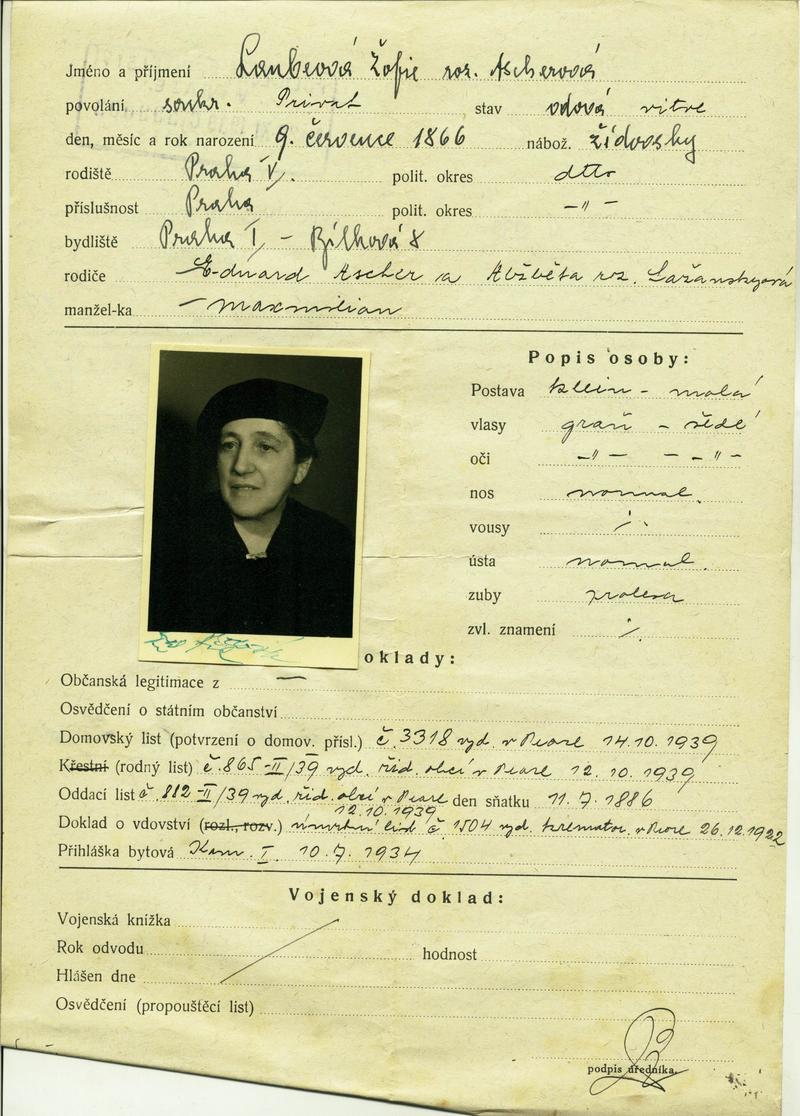 Jméno a příjmení Laubeová Žofie roz. Ascherová
povolání soukr. Privat stav vdova
den, měsíc a rok narození 9. července 1866 nábož. židovsky
rodiště Praha V. polit. okres dtto
příslušnost Praha polit. okres -"-
bydliště Praha I - Bílkova 8
rodiče Eduard Ascher a Alžběta roz. Lažanskyová
manžel-ka - Maxmilian
Popis osoby:
Postava klein - malá
vlasy grau - šedé
oči -"- - -"-
nos normal.
vousy ./.
ústa normal.
zuby protesa
zvl. znamení ./.
oklady:
Občanská legitimace z —
Osvědčení o státním občanství
Domovský list (potvrzení o domov. přísl.) č. 3318 vyd. v Praze 14.10.1939
Křestní (rodný list) č. 865-II/39 vyd. žid. obcí v Praze 12.10.1939
Oddací list č. 812-II/39 vyd. žid. obcí v Praze 12.10.1939 den sňatku 11.7.1886
Doklad o vdovství (rozl., rozv.) úmrtní list č. 1504 vyd. kremator. v Praze 26.12.1922
Přihláška bytová Kom. I. 10.7.1934
Vojenský doklad:
Vojenská knížka
Rok odvodu hodnost
Hlášen dne
Osvědčení (propouštěcí list)
podpis úředníka.